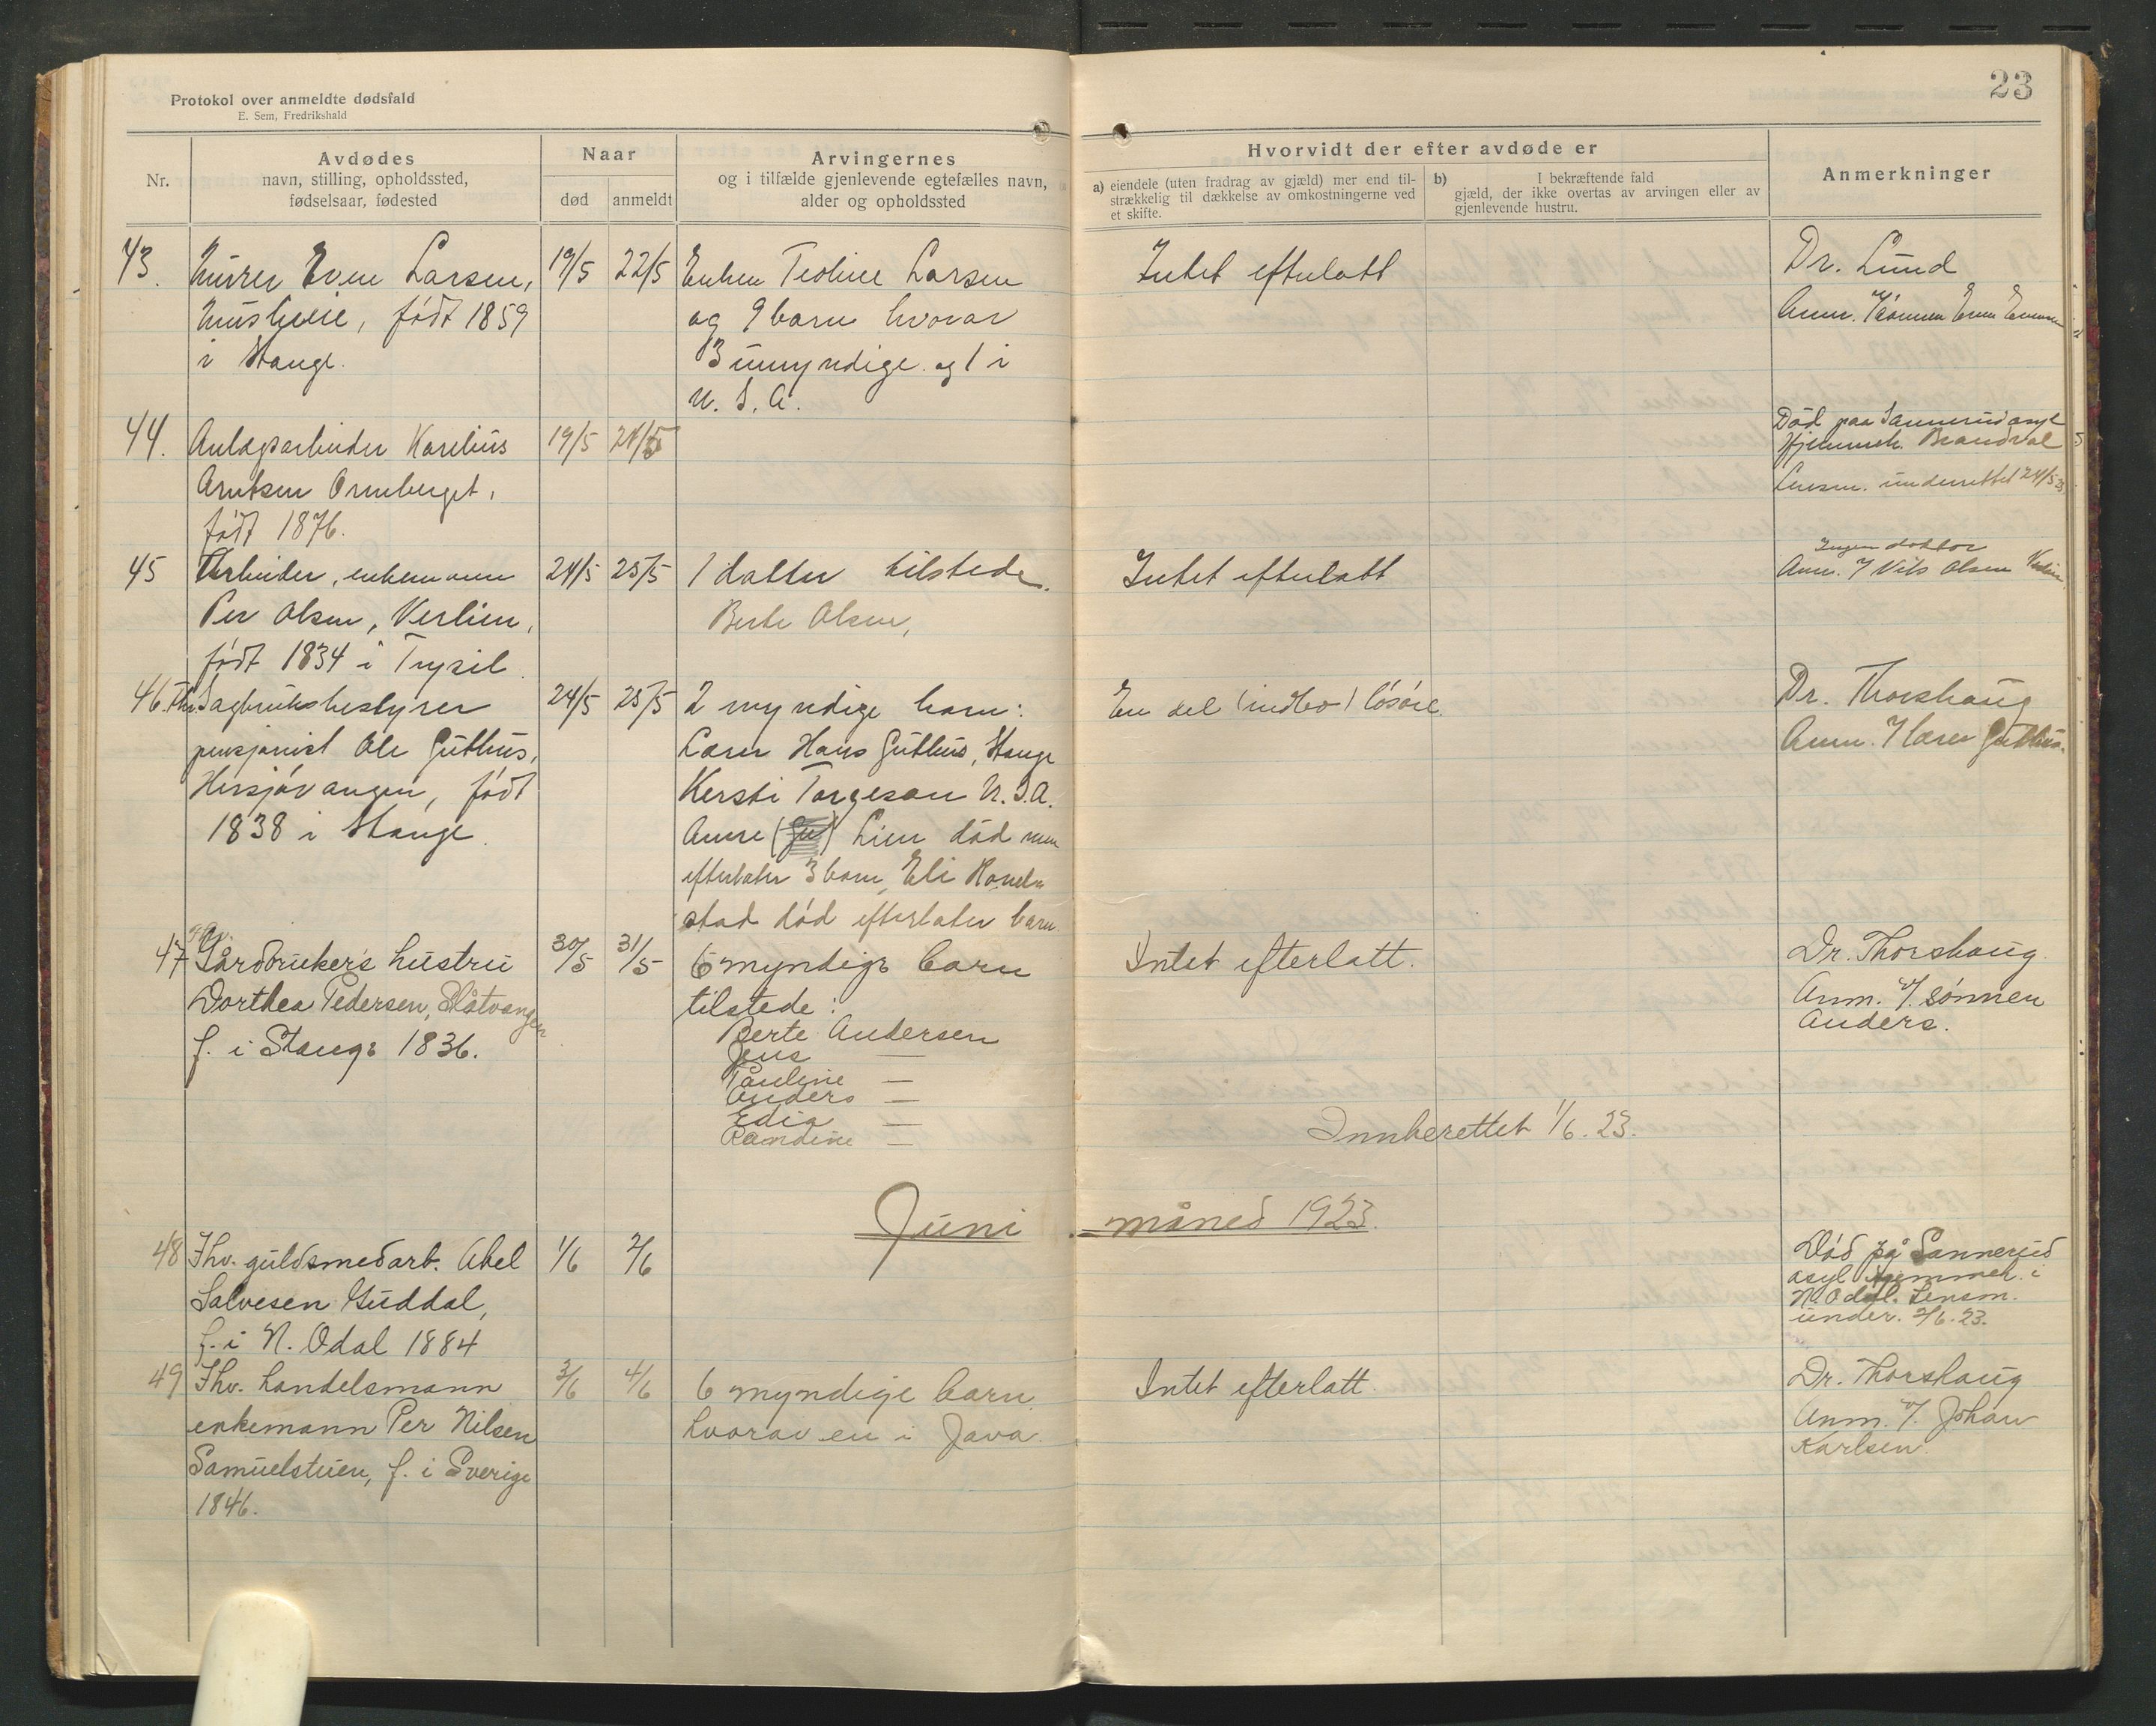 23
Protokol over anmeldte dødsfald
E. Sem, Fredrikshald
Nr.
Avdødes
navn, stilling, opholdssted,
fødselsaar, fødested
Naar
død
anmeldt
Arvingernes
og i tilfælde gjenlevende egtefælles navn,
alder og opholdssted
Hvorvidt der efter avdøde er
a) eiendele (uten fradrag av gjæld) mer end til-
strækkelig til dækkelse av omkostningerne ved
et skifte.
b) I bekræftende fald
gjæld, der ikke overtas av arvingen eller av
gjenlevende hustru.
Anmerkninger
43. Murer Even Larsen, 19/5 22/5 Enken Teoline Larsen Intet efterlatt Dr. Lund
født 1859 og 9 barn hvorav Anm.
i Stange. 3 umyndige og 1 i
U. S. A.
44. Anlægsarbeider Karelius 19/5 24/5 Død paa Sannerud asyl
Arntsen Ormberget, Hjemmeh. Brandval
født 1876. Lensm. underrettet 24/5 23
45 Arbeider, enkemann 24/5 25/5 1 datter tilstede. Intet efterlatt Ingen doktor
Per Olsen, Verlien, Berte Olsen, Anm. v/ Nils Olsen
født 1834 i Trysil.
46. Fhv. Sagbruksbestyrer 24/5 25/5 2 myndige barn: En del (indbo) løsøre. Dr. Thorshaug
pensjonist Ole Guthus, Lærer Hans Guthus, Stange Anm. v/ lærer Guthus.
Hersjøvangen, født Kersti Torgeson U. S. A.
1838 i Stange. Anne (Gu) Lien død men
efterlater 3 barn, Eli
stad død efterlater barn.
47 fhv. Gårdbrukers hustru 30/5 31/5 6 myndige barn Intet efterlatt. Dr. Thorshaug.
Dorthea Pedersen, Slåtvangen tilstede: Anm. v/. sønnen
f. i Stange 1836. Berte Andersen Anders.
Jens —
Pauline —
Anders —
Edia —
Ramdine —
Innberettet 1/6. 23.
Juni måned 1923.
48 Fhv. guldsmedarb. Abel 1/6 2/6 Død på Sannerud
Salvesen Guddal, asyl hjemmeh. i
f. i N. Odal 1884 N. Odal. Lensm.
under. 2/6. 23.
49 Fhv. handelsmann 3/6 4/6 6 myndige barn. Intet efterlatt. Dr. Thorshaug
enkemann Per Nilsen hvorav en i Java. Anm. v/. Johan
Samuelstuen, f. i Sverige Karlsen.
1846.